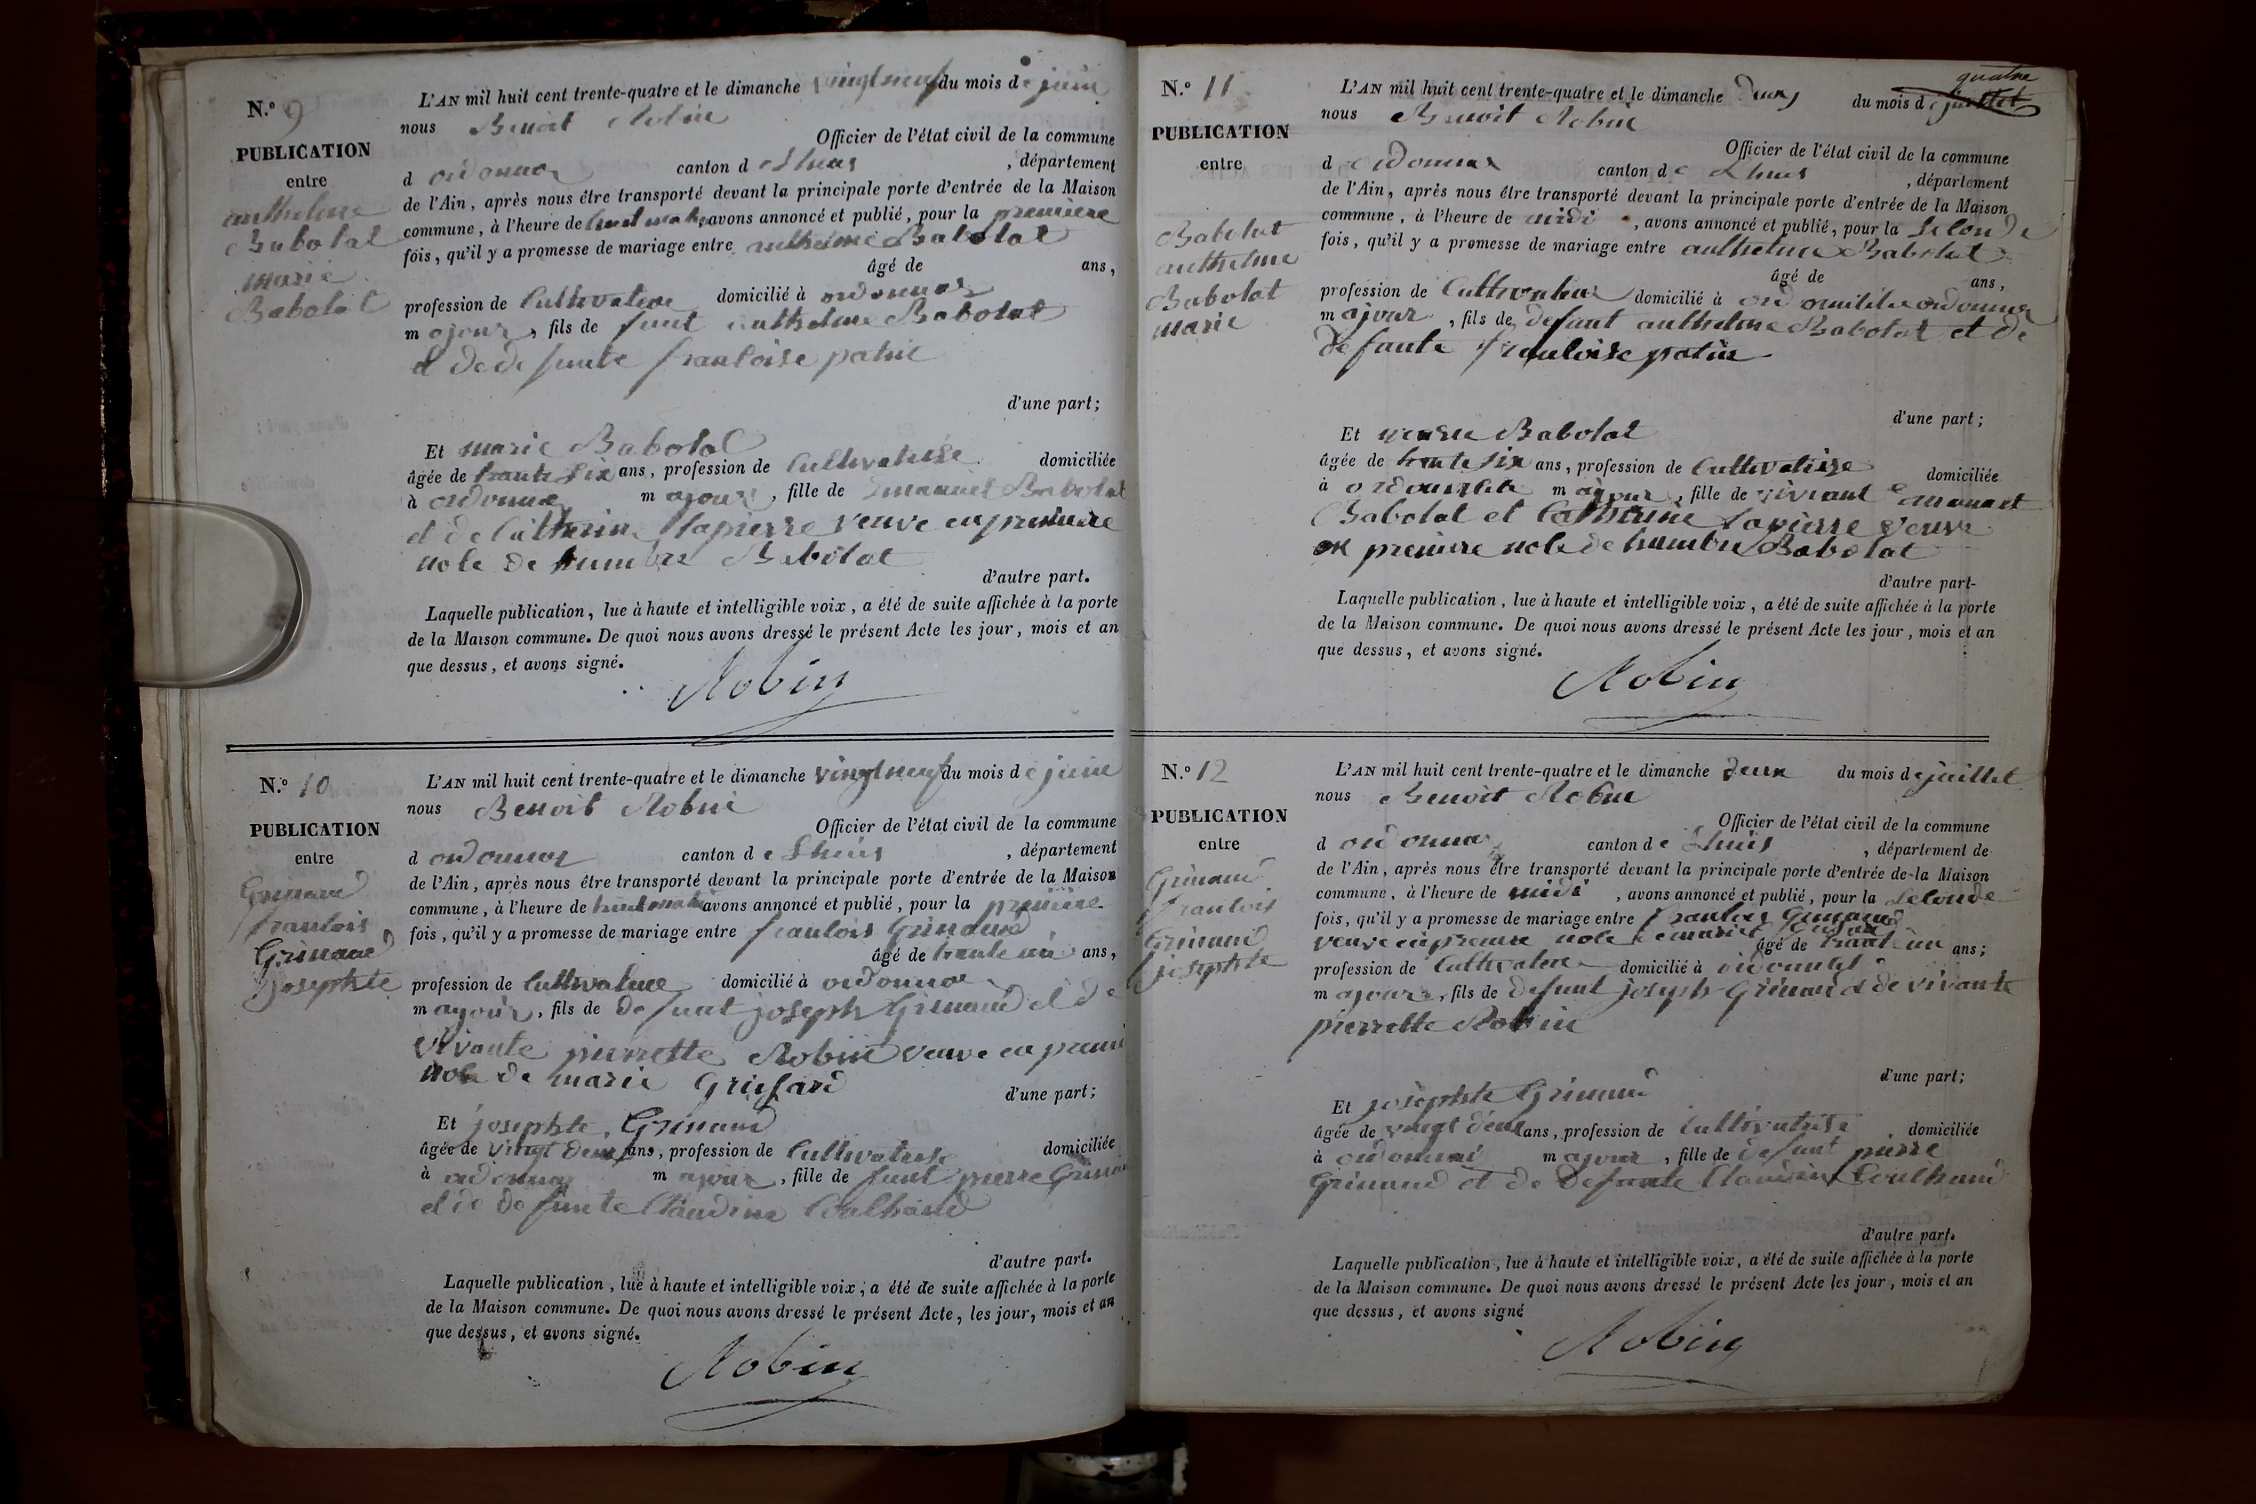 N.º 9
PUBLICATION
entre
anthelme
Babolat
marie
Babolat
L'AN mil huit cent trente-quatre et le dimanche vingt neuf du mois de juin
nous Benoit Robin
Officier de l'état civil de la commune
d ordonnaz canton d Lhuis , département
de l'Ain, après nous être transporté devant la principale porte d'entrée de la Maison
commune, à l'heure de huit avons annoncé et publié, pour la premiere
fois, qu'il y a promesse de mariage entre anthelme Babolat
âgé de ans,
profession de Cultivateur domicilié à ordonnaz
majour, fils de funt anthelme Babolat
et de defunte francoise patin
d'une part;
Et marie Babolat
âgée de trante six ans, profession de Cultivatrise domiciliée
à ordonnaz majoure, fille de Emanuel Babolat
et de Catherine lapierre veuve en premiere
nole de humbre Babolat
d'autre part.
Laquelle publication, lue à haute et intelligible voix, a été de suite affichée à la porte
de la Maison commune. De quoi nous avons dressé le présent Acte les jour, mois et an
que dessus, et avons signé.
Robin
N.º 10
PUBLICATION
entre
Grinand
francois
Grinand
josephte
L'AN mil huit cent trente-quatre et le dimanche vingt neuf du mois de juin
nous Benoit Robin
Officier de l'état civil de la commune
d ordonnaz canton de Lhuis , département
de l'Ain, après nous être transporté devant la principale porte d'entrée de la Maison
commune, à l'heure de huit avons annoncé et publié, pour la premiere
fois, qu'il y a promesse de mariage entre francois Grinand
âgé de trante un ans,
profession de Cultivateur domicilié à ordonnaz
majour, fils de defunt joseph Grinand et de
vivante pierrette Robin veuve en premi
nole de marie
d'une part;
Et josephte Grinand
âgée de vingt deux ans, profession de Cultivatrise domiciliée
à ordonnaz majour, fille de funt pierre Grinan
et de defunte Claudine
d'autre part.
Laquelle publication, lue à haute et intelligible voix, a été de suite affichée à la porte
de la Maison commune. De quoi nous avons dressé le présent Acte, les jour, mois et an
que dessus, et avons signé.
Robin
N.º 11
PUBLICATION
entre
Babolat
anthelme
Babolat
marie
quatre
L'AN mil huit cent trente-quatre et le dimanche du mois de juillet
nous Benoit Robin
Officier de l'état civil de la commune
de ordonnaz canton de Lhuis , département
de l'Ain, après nous être transporté devant la principale porte d'entrée de la Maison
commune, à l'heure de midi , avons annoncé et publié, pour la seconde
fois, qu'il y a promesse de mariage entre anthelme Babolat
âgé de ans,
profession de Cultivateur domicilié à ordonnaz
majour , fils de defunt anthelme Babolat et de
defunte francoise patin
d'une part;
Et marie Babolat
âgée de trente six ans, profession de Cultivatrise domiciliée
à majour, fille de vivant
Babolat et Catherine lapierre veuve
en premiere nole de humbre Babolat
d'autre part-
Laquelle publication, lue à haute et intelligible voix, a été de suite affichée à la porte
de la Maison commune. De quoi nous avons dressé le présent Acte les jour, mois et an
que dessus, et avons signé.
Robin
N.º 12
PUBLICATION
entre
Grinand
francois
Grinand
josephte
L'AN mil huit cent trente-quatre et le dimanche deux du mois de juillet
nous Benoit Robin
Officier de l'état civil de la commune
d ordonnaz canton de Lhuis , département de
de l'Ain, après nous être transporté devant la principale porte d'entrée de la Maison
commune, à l'heure de midi , avons annoncé et publié, pour la seconde
fois, qu'il y a promesse de mariage entre francois Grinand
veuve en premiere nole de marie âgé de trante un ans;
profession de Cultivateur domicilié à
majour, fils de defunt joseph Grinand et de vivante
pierrette Robin
d'une part;
Et josephte Grinand
âgée de vingt deux ans, profession de Cultivatrise domiciliée
à majour , fille de defunt pierre
Grinand et de defunte Claudine
d'autre part.
Laquelle publication, lue à haute et intelligible voix, a été de suite affichée à la porte
de la Maison commune. De quoi nous avons dressé le présent Acte les jour, mois et an
que dessus, et avons signé
Robin